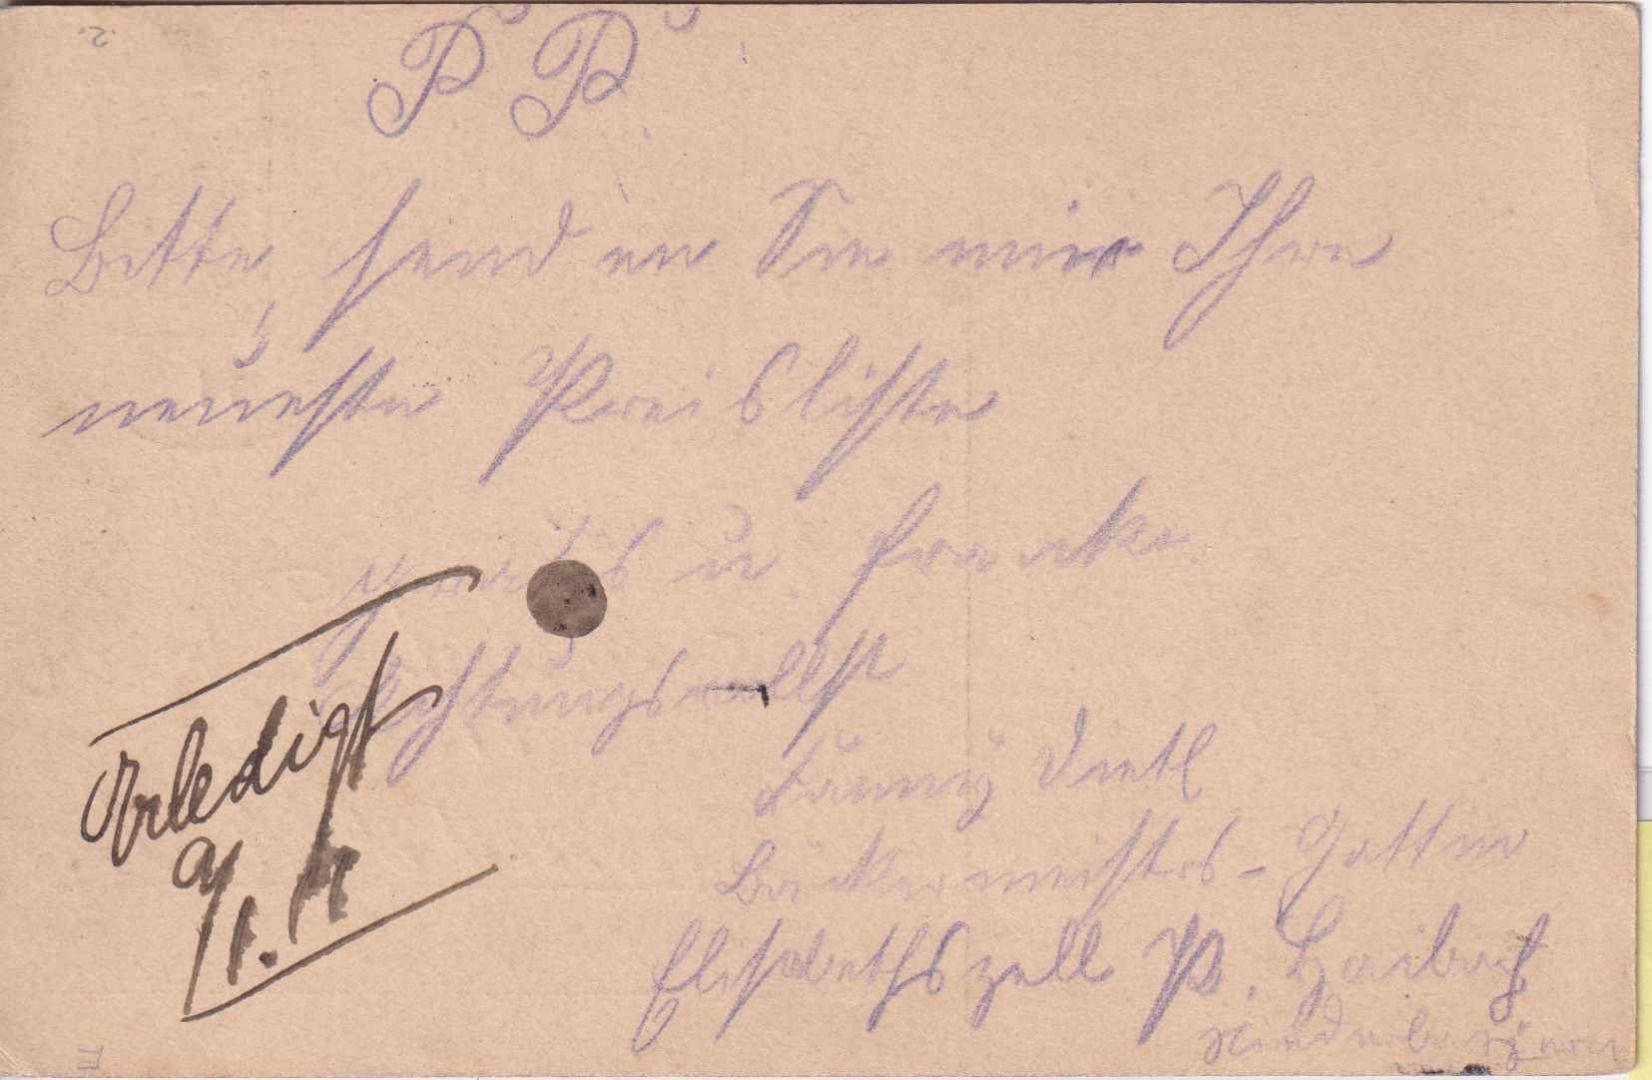 P. P.
Bitte senden Sie mir Ihre
neueste Preisliste
gratis u. franko
Achtungsvollst
Fanny Dietl
Bäckermeisters-Gattin
Elisabethszell P. Haibach
Niederbayern
Erledigt
9/1. 17